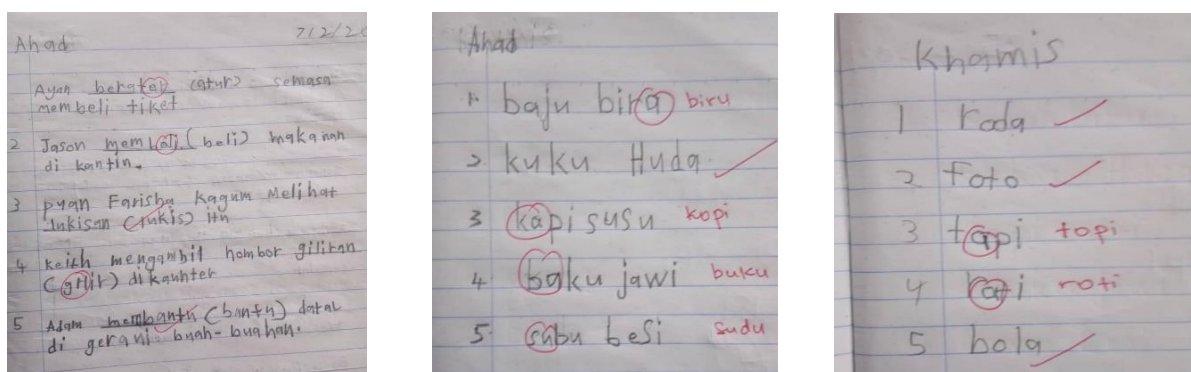 Ahad 7/2/2
Ayah (atur) semasa
membeli tiket
2 Jason (beli) makanan
di kantin.
3 Farisha kagum melihat
lukisan (lukis) itu
4 Keith mengambil giliran
di
5 Adam (bantu) datal
di gerani buah-buahan.
Ahad
1. baju bira biru
2. kuku Huda
3 kapi susu kopi
4 baku jawi buku
5 subu besi sudu
Khamis
1 roda
2 foto
3 tapi topi
4 rati roti
5 bola